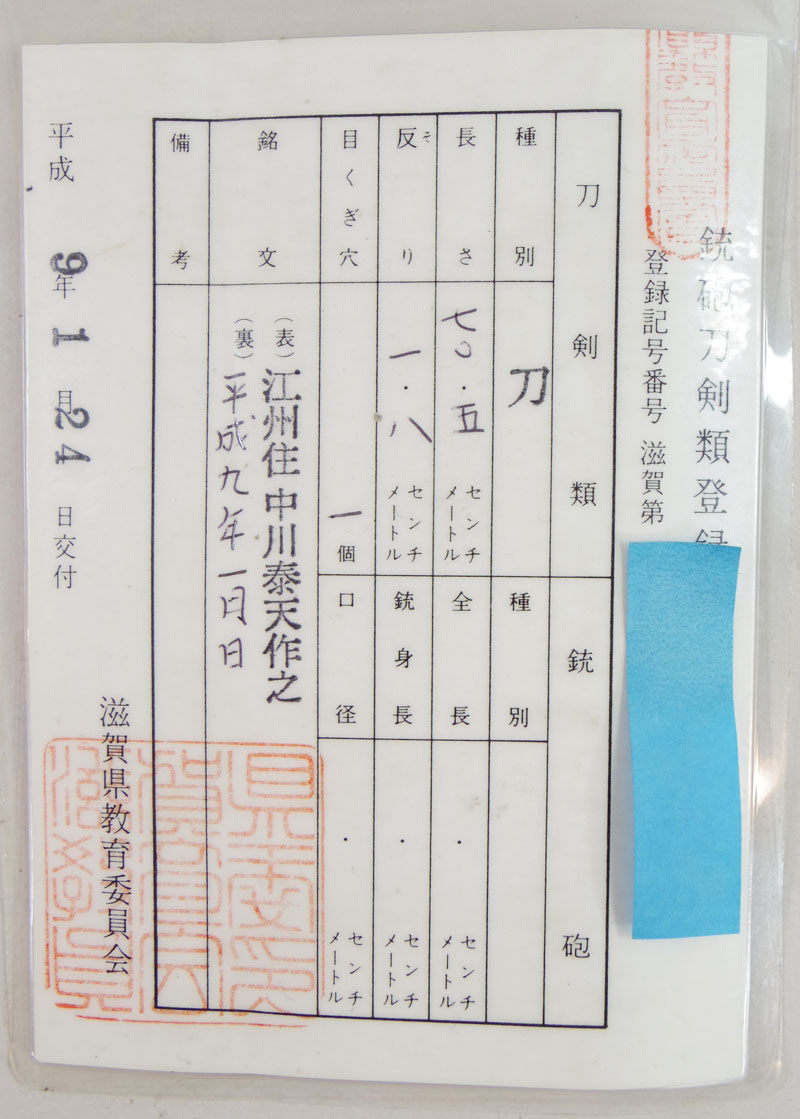 銃砲刀剣類登録
登録記号番号 滋賀第
刀剣類
銃砲
種別
刀
種別
長さ
七〇・五
センチメートル
全長
・
センチメートル
反り
そ
一・八
センチメートル
銃身長
・
センチメートル
目くぎ穴
一個
口径
・
センチメートル
銘文
(表)江州住中川泰天作之
(裏)平成九年一月日
備考
平成 9年 1月24日交付
滋賀県教育委員会